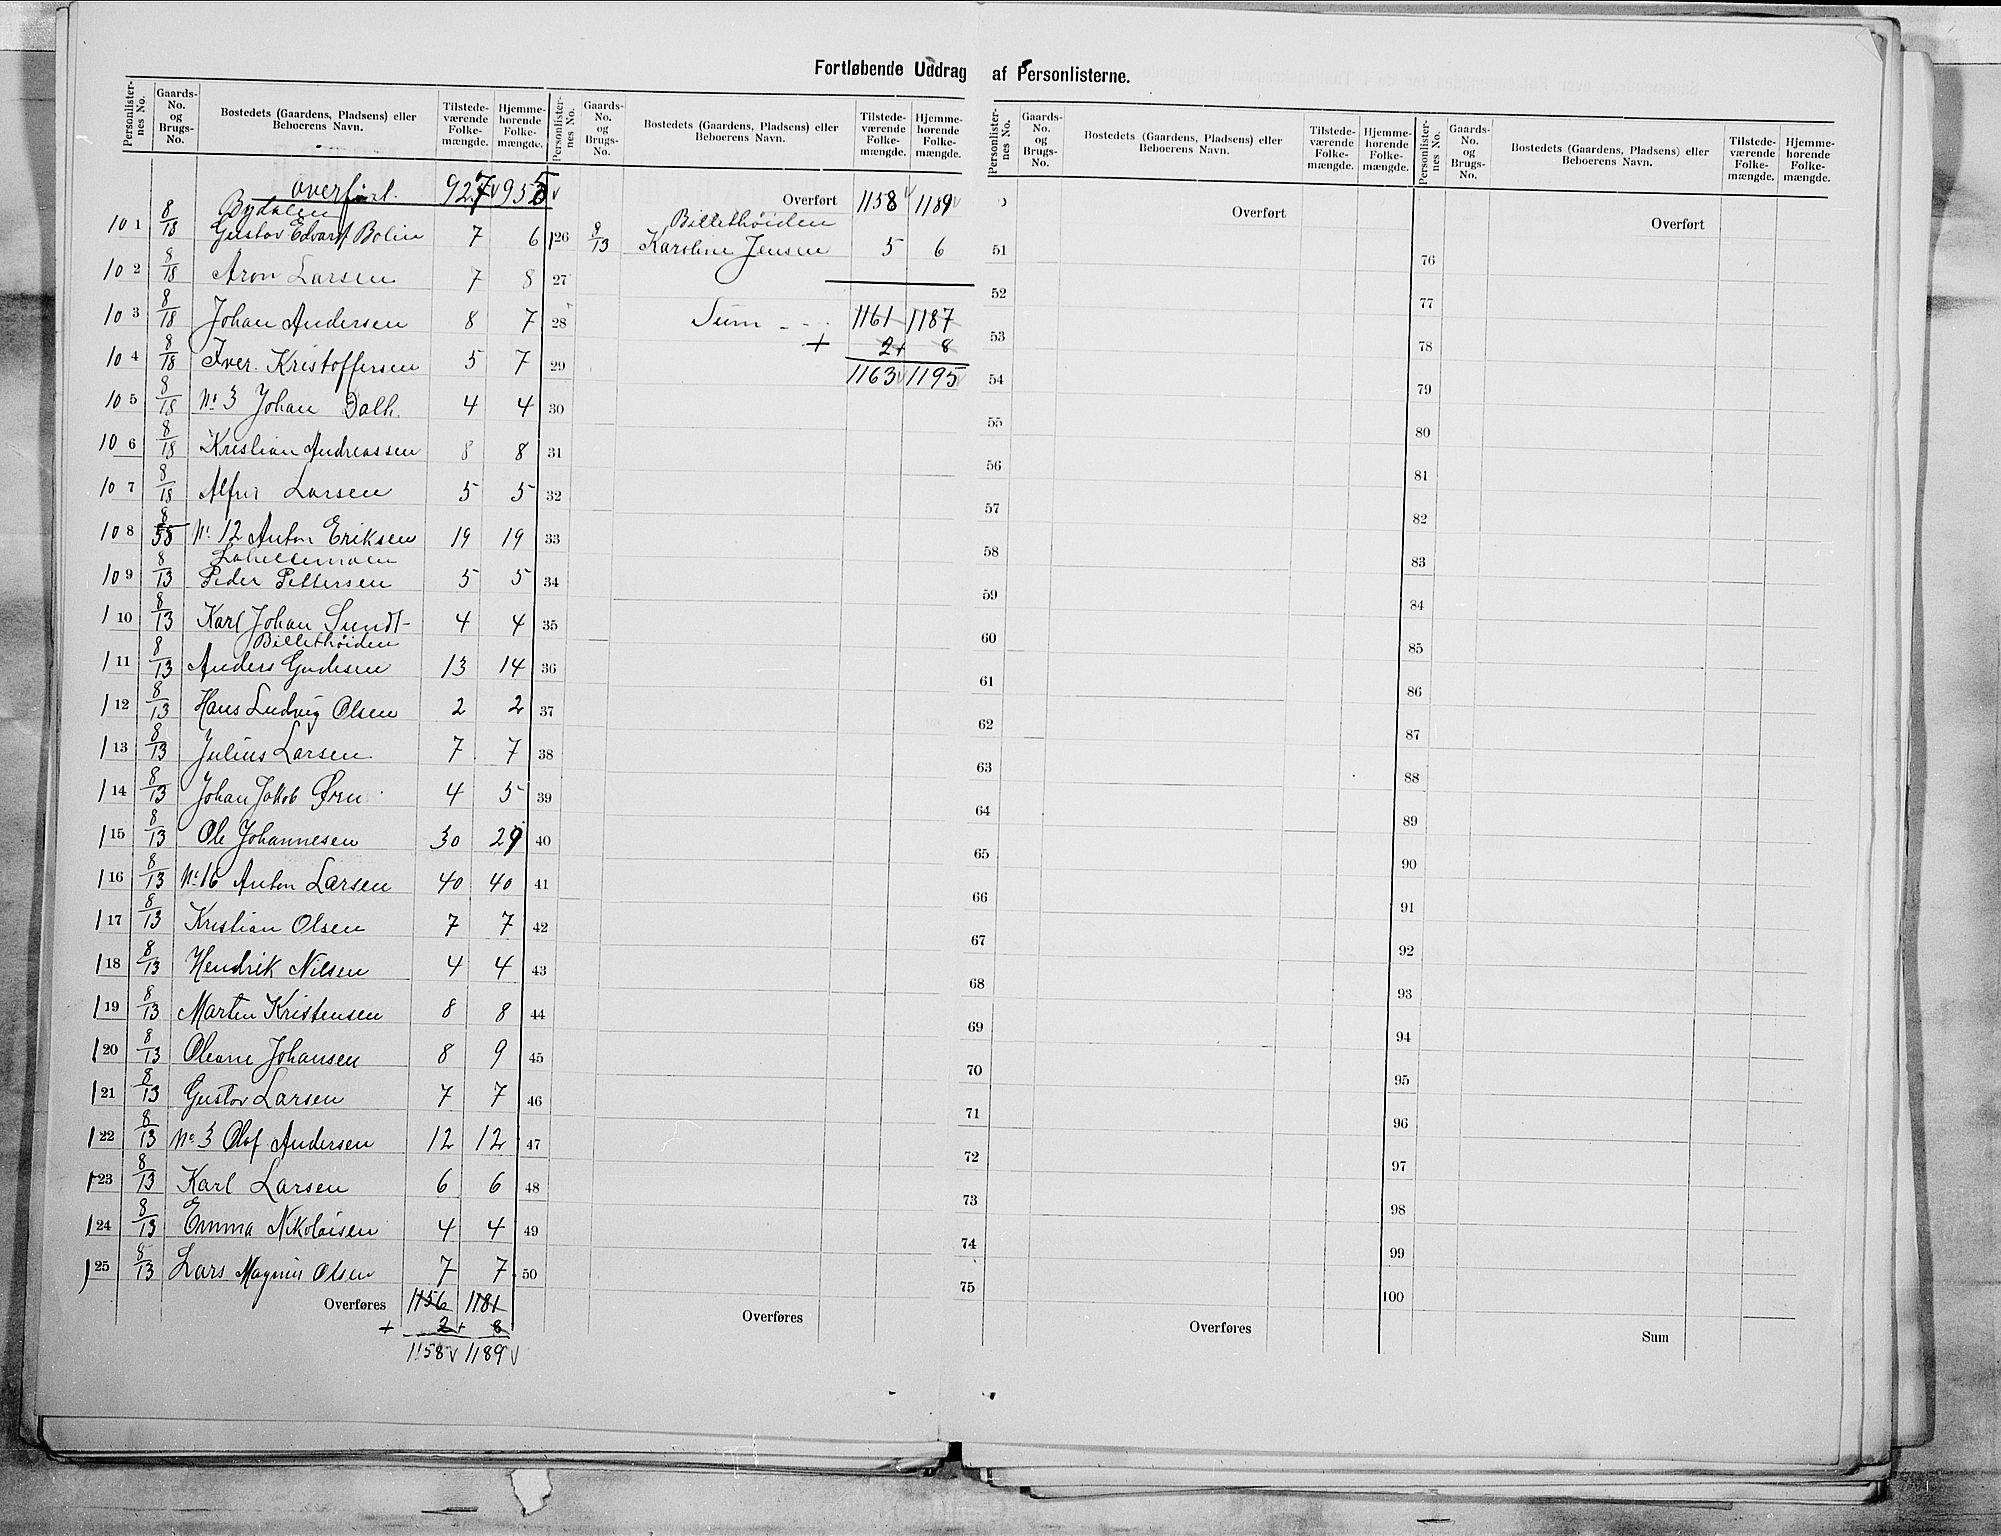 Fortløbende Uddrag af Personlisternes.
Personlister-nes No. Gaards-No. og Brugs-No. Bostedets (Gaardens, Pladsens) eller Beboerens Navn. Tilstede-værende Folke-mængde. Hjemme-hørende Folke-mængde.
overført. 927 955
Bydalen
101 8/18 Gustav Edvart Bolin 7 6
102 8/18 Aron Larsen 7 8
103 8/18 Johan Andersen 8 7
104 8/18 Iver Kristoffersen 5 7
105 8/18 No 3 Johan Dalh. 4 4
106 8/18 Kristian Andreassen 8 8
107 8/18 Alfred Larsen 5 5
108 8/55 No 12 Anton Eriksen 19 19
Labellemoen
109 8/13 Peder Pettersen 5 5
110 8/13 Karl Johan Sundt 4 4
Billethöiden
111 8/13 Anders Gudesen 13 14
112 8/13 Hans Ludvig Olsen 2 2
113 8/13 Julius Larsen 7 7
114 8/13 Johan Jakob Ørn 4 5
115 8/13 Ole Johannesen 30 29
116 8/13 No 16 Anton Larsen 40 40
117 8/13 Kristian Olsen 7 7
118 8/13 Hendrik Nilsen 4 4
119 8/13 Martin Kristensen 8 8
120 8/13 Oleane Johansen 8 9
121 8/13 Gustav Larsen 7 7
122 8/13 No 3 Olof Andersen 12 12
123 8/13 Karl Larsen 6 6
124 8/13 Emma Nikolaisen 4 4
125 8/13 Lars Magnus Olsen 7 7
Overføres 1156 1181
+ 2+ 8
1158 1189
Personlister-nes No. Gaards-No. og Brugs-No. Bostedets (Gaardens, Pladsens) eller Beboerens Navn. Tilstede-værende Folke-mængde. Hjemme-hørende Folke-mængde.
Overført 1158 1189
Billethöiden
126 8/13 Karoline Jensen 5 6
27
28 Sum 1161 1187
+ 2+ 8
29 1163 1195
30
31
32
33
34
35
36
37
38
39
40
41
42
43
44
45
46
47
48
49
50
Overføres
Personlister-nes No. Gaards-No. og Brugs-No. Bostedets (Gaardens, Pladsens) eller Beboerens Navn. Tilstede-værende Folke-mængde. Hjemme-hørende Folke-mængde.
Overført
51
52
53
54
55
56
57
58
59
60
61
62
63
64
65
66
67
68
69
70
71
72
73
74
75
Overføres
Personlister-nes No. Gaards-No. og Brugs-No. Bostedets (Gaardens, Pladsens) eller Beboerens Navn. Tilstede-værende Folke-mængde. Hjemme-hørende Folke-mængde.
Overført
76
77
78
79
80
81
82
83
84
85
86
87
88
89
90
91
92
93
94
95
96
97
98
99
100
Sum